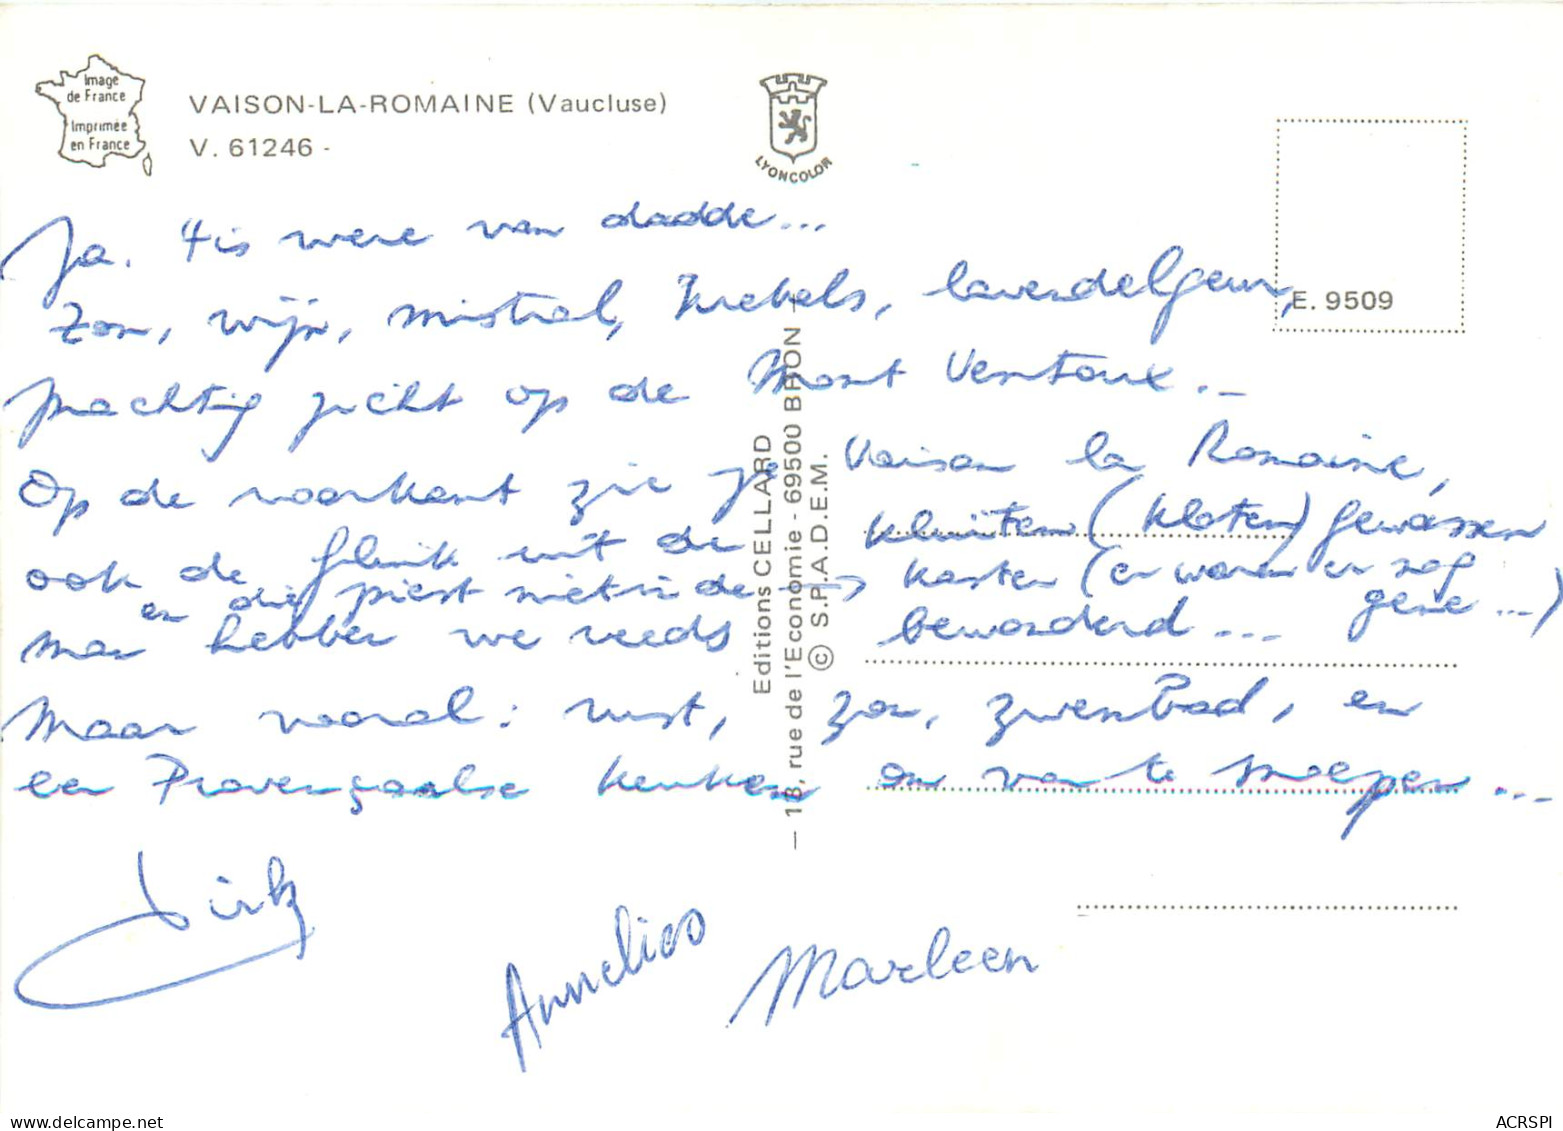 Image
de France
Imprimée
en France
VAISON-LA-ROMAINE (Vaucluse)
V. 61246 -
LYONCOLOR
E. 9509
Ja. 't is weer van dadde...
Zon, wijn, mistral, krekels, lavendelgeur,
machtig zicht op de Mont Ventoux. _
Op de voorkant zie je Vaison la Romaine,
ook de flink uit de kluiten (kloten) gewassen
en die piest niet in de kasten (er waren er nog
gene ...)
man hebben we reeds bewonderd ...
Maar vooral: rust, zon, zwembad, en
een Provençaalse keuken om van te snoepen ...
Dirk
Annelies
Marleen
Editions CELLARD
— 18, rue de l'Economie - 69500 BRON —
© S.P.A.D.E.M.
ACRSPI